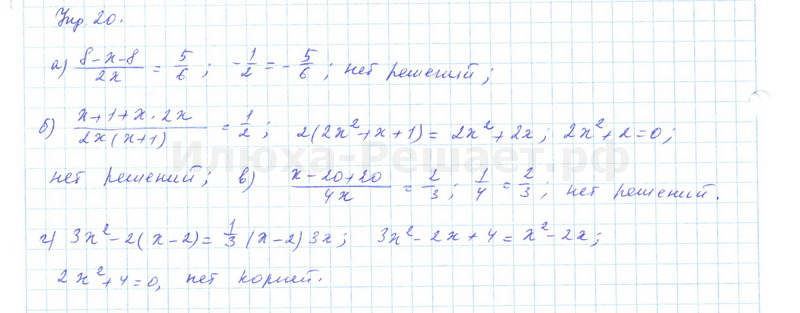 Упр 20.
а) (8-x-8)/(2x) = 5/6; -1/2 = -5/6; нет решений;
б) (x+1+x·2x)/(2x(x+1)) = 1/2; 2(2x²+x+1) = 2x²+2x; 2x²+2=0;
нет решений; в) (x-20+20)/(4x) = 2/3; 1/4 = 2/3; нет решений.
г) 3x²-2(x-2) = 1/3 (x-2) 3x; 3x²-2x+4 = x²-2x;
2x²+4=0, нет корней.
Илюха-Решает.рф